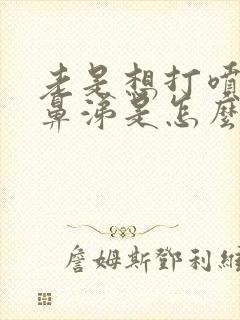 老是想打噴
鼻涕是怎麼
詹姆斯鄧利維